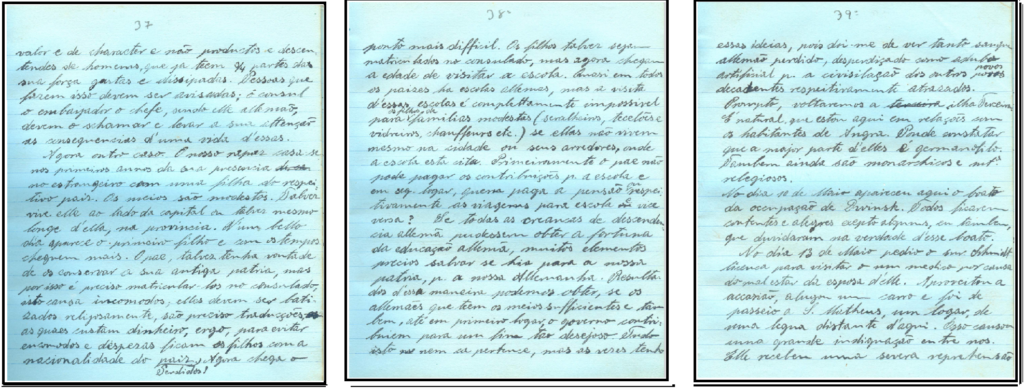 37
valor e de character e não productos e descen-
tendes de homens, que ja teem ¾ partes da
sua força gastas e dissipadas. Pessoas que
fazem isso devem ser avisadas; é consul
o embaixador o chefe, sendo elle allemão,
devem o schamar e levar a sua attenção
as consequencias d'uma vida d'essas.
Agora outro caso. O nosso rapaz casa se
nos primeiros annos da sua presencia
no estrangeiro com uma filha do respei-
tivo pais. Os meios são modestos. Talvez
vive elle ao lado da capital ou talvez mesmo
longe d'ella, na provincia. N'um bello
dia aparece o primeiro filho e com os tempos
cheguem mais. O pae, talvez tenha vontade
de os conservar a sua antiga patria, mas
por isso é preciso matricular-los no consulado,
isto causa incomodos; elles devem ser bati-
zados religiosamente, são preciso traducções,
as quaes custam dinheiro, ergo, para evitar
encomodos e despesas ficam os filhos com a
nacionalidade do pais. Agora chega o
Perdidos!
38
ponto mais difficil. Os filhos talvez sejam
matriculados no consulado, mas agora chegam
a edade de visitar a escola. Quasi em todos
os paizes ha escolas allemãs, mas a visita
d'essas escolas é completamente impossivel
para os filhos de familias modestas (serralheiros, tecelões
vidreiros, chauffeurs etc.) se ellas não vivem
mesmo na cidade ou seus arredores, onde
a escola está sita. Primeiramente o pae não
pode pagar os contribuições p. a escola e
em seg. logar, quem paga a pensão respei-
tivamente as viagens para escola e vice
versa? Se todas as creanças de descenden-
cia allemã pudessem obter a fortuna
da educação allemã, muitos elementos
precios salvar se hia para a nossa
patria, p. a nossa Allemanha. Resulta-
dos d'essa maneira podemos obter, se os
allemães que teem os meios sufficientes e tam-
bem, até em primeiro logar, o governo contri-
buiem para um fim tão desejoso. Tudo
isto nem ca pertence, mas as vezes tenho
39
essas ideias, pois doi-me de ver tanto sangue
allemão perdido, desperdiçado como adubo
artificial p. a civilisação dos outros povos
decadentes respeitivamente atrazados.
Prompto, voltaremos a ilha Terceira.
E natural, que estou aqui em relações com
os habitantes de Angra. Pude constatar
que a major parte d'elles é germanofilo.
Tambem ainda são monarchicos e mtº
relegiosos.
No dia 10 de Maio apareceu aqui o boato
da occupação de Dwinsk. Todos ficarem
contentes e alegres exepto alguns, eu tambem,
que duvidaram na verdade d'esse boato.
No dia 13 de Maio pediu o snr Schmidt
licença para visitar o um medico por causa
do mal estar da esposa d'elle. Aproveitou a
accasião, alugou um carro e foi de
passeio a S. Matheus, um logar, de
uma legua distante d'aqui. Isso causou
uma grande indignação entre nos.
Elle recebeu uma severa reprehensão